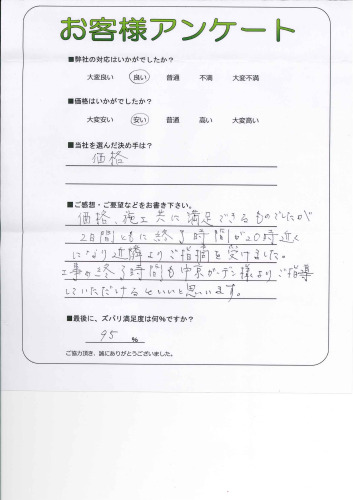 お客様アンケート
■弊社の対応はいかがでしたか？
大変良い 良い 普通 不満 大変不満
■価格はいかがでしたか？
大変安い 安い 普通 高い 大変高い
■当社を選んだ決め手は？
価格
■ご感想・ご要望などをお書き下さい。
価格、施工共に満足できるものでしたが
2日間ともに終了時間が20時近く
になり近隣よりご指摘を受けました。
工事の終了時間も中京ガーデン様よりご指導
していただけるといいと思います。
■最後に、ズバリ満足度は何%ですか？
95 %
ご協力頂き、誠にありがとうございました。